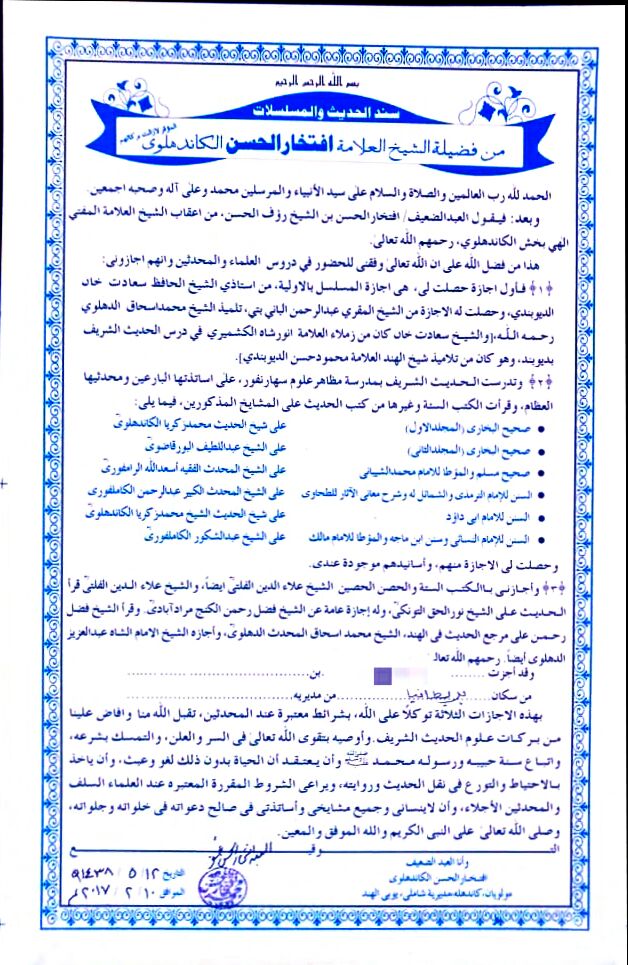 بسم الله الرحمن الرحيم
سند الحديث والمسلسلات
من فضيلة الشيخ العلامة افتخار الحسن الكاندهلوى
الحمد لله رب العالمين والصلاة والسلام على سيد الأنبياء والمرسلين محمد وعلى آله وصحبه اجمعين.
وبعد: فيقول العبد الضعيف/ افتخار الحسن بن الشيخ رؤف الحسن، من اعقاب الشيخ العلامة المفتي
الهي بخش الكاندهلوي، رحمهم الله تعالىٰ
هذا من فضل الله على ان الله تعالىٰ وفقنى للحضور في دروس العلماء والمحدثين وانهم اجازونى:
﴿١﴾ فأول اجازة حصلت لى، هى اجازة المسلسل بالاولية، من استاذي الشيخ الحافظ سعادت خان
الديوبندي، وحصلت له الاجازة من الشيخ المقري عبدالرحمن الباني بتي، تلميذ الشيخ محمداسحاق الدهلوي
رحمه الله،[والشيخ سعادت خان كان من زملاء العلامة انورشاه الكشميري في درس الحديث الشريف
بديوبند، وهو كان من تلاميذ شيخ الهند العلامة محمودحسن الديوبندي].
﴿٢﴾ وتدرست الحديث الشريف بمدرسة مظاهرعلوم سهارنفور، على اساتذتها البارعين ومحدثيها
العظام، وقرأت الكتب الستة وغيرها من كتب الحديث على المشايخ المذكورين، فيما يلى:
● صحيح البخارى (المجلدالاول) على شيخ الحديث محمدزكريا الكاندهلوىؒ
● صحيح البخارى (المجلدالثانى) على الشيخ عبداللطيف البورقاضوىؒ
● صحيح مسلم والمؤطا للامام محمدالشيبانى على الشيخ المحدث الفقيه أسعدالله الرامفورىؒ
● السنن للإمام الترمذى والشمائل له وشرح معانى الآثار للطحاوى على الشيخ المحدث الكبير عبدالرحمن الكاملفورى
● السنن للامام ابى داؤد على شيخ الحديث الشيخ محمدزكريا الكاندهلوىؒ
● السنن للامام النسائى وسنن ابن ماجه والمؤطا للامام مالك على الشيخ عبدالشكور الكاملفورىؒ
وحصلت لى الاجازة منهم، وأسانيدهم موجودة عندى.
﴿٣﴾ وأجازنى بالكتب الستة والحصن الحصين الشيخ علاء الدين الفلتىؒ ايضاً، والشيخ علاء الدين الفلتىؒ قرأ
الحديث على الشيخ نورالحق التونكىؒ، وله إجازة عامة عن الشيخ فضل رحمن الكنج مرادآبادىؒ. وقرأ الشيخ فضل
رحمن على مرجع الحديث فى الهند، الشيخ محمد اسحاق المحدث الدهلوىؒ، وأجازه الشيخ الامام الشاه عبدالعزيز
الدهلوى أيضاً. رحمهم الله تعالىٰ
وقد أجزت ........ بن ........
من سكان ..... بريطانيا ........ من مديريه ........
بهذه الاجازات الثلاثة توكلاً على الله، بشرائط معتبرة عند المحدثين، تقبل الله منا وافاض علينا
من بركات علوم الحديث الشريف. وأوصيه بتقوى الله تعالىٰ فى السر والعلن، والتمسك بشرعه،
واتباع سنة حبيبه ورسوله محمد ﷺ وأن يعتقد أن الحياة بدون ذلك لغو وعبث، وأن ياخذ
بالاحتياط والتورع فى نقل الحديث وروايته، ويراعى الشروط المقررة المعتبره عند العلماء السلف
والمحدثين الأجلاء، وأن لاينسانى وجميع مشايخى وأساتذتى فى صالح دعواته فى خلواته وجلواته،
وصلى الله تعالىٰ على النبى الكريم والله الموفق والمعين.
التوقيع
وأنا العبد الضعيف
افتخارالحسن الكاندهلوى
مولويان، كاندهله، مديرية شاملى، يوبى الهند
التاريخ ١٢ / ٥ / ١٤٣٨ه
الموافق ١٠ / ٢ / ٢٠١٧م